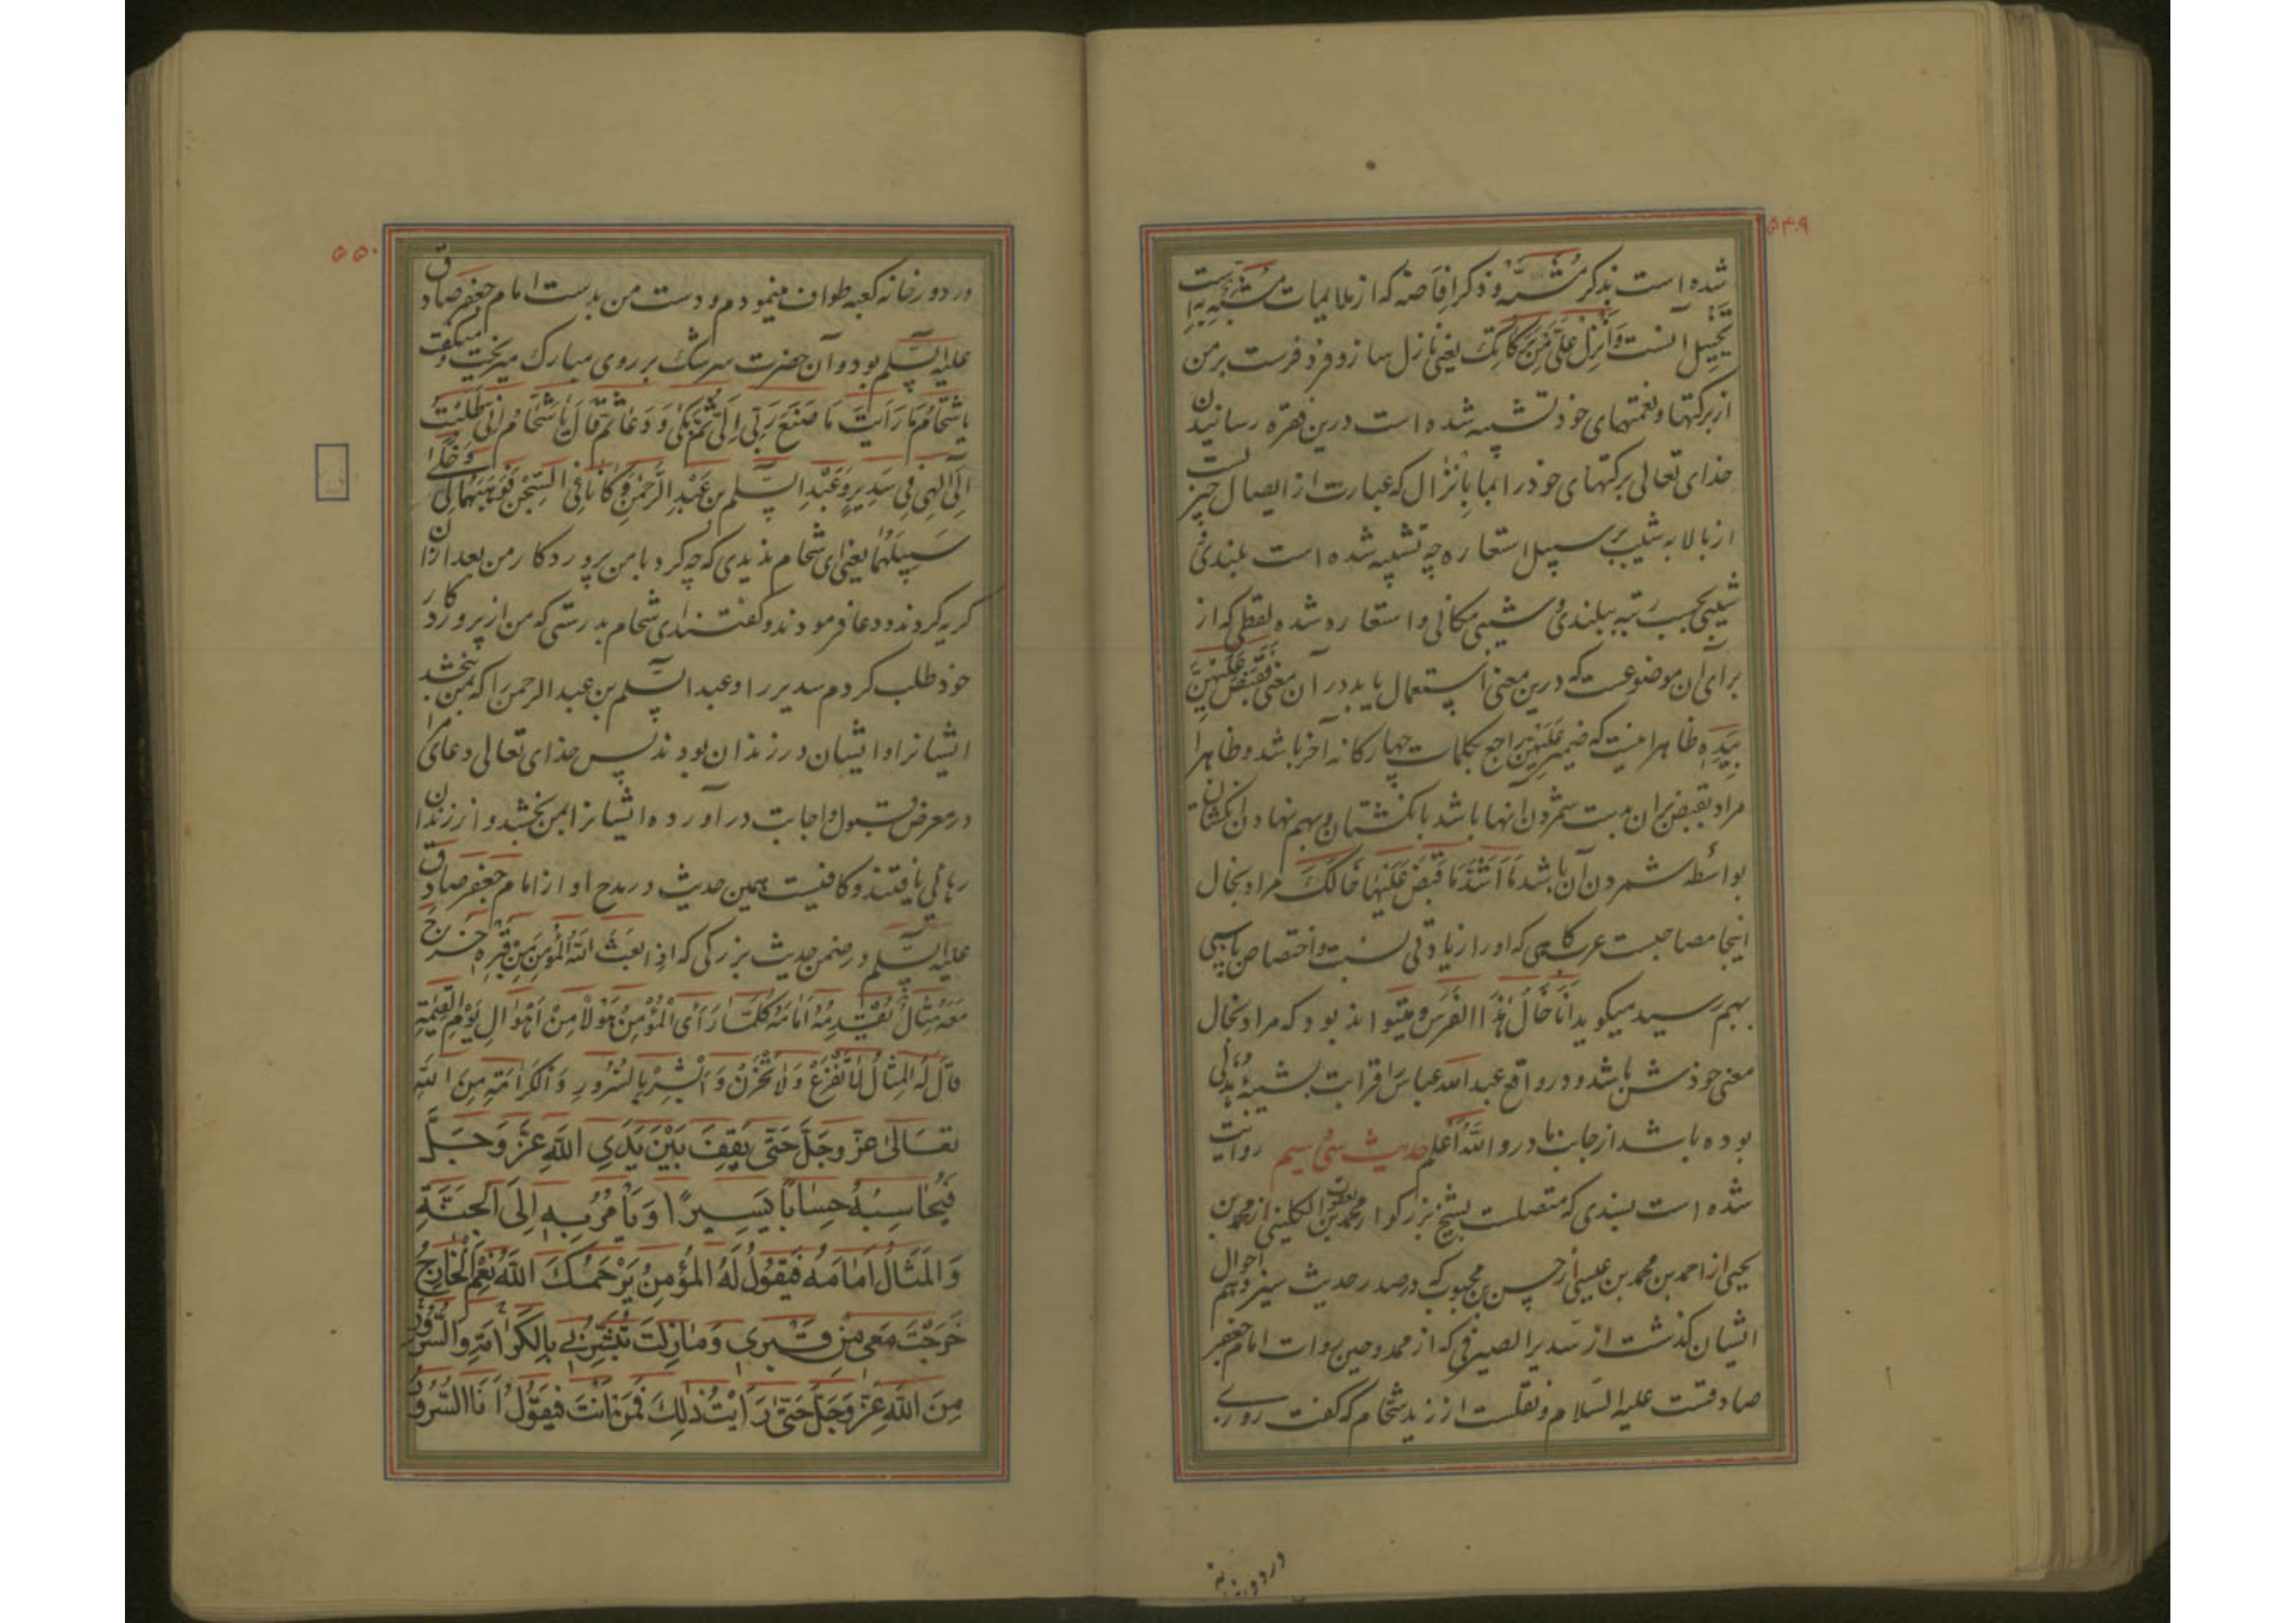 ۵۴۹
شده است بذکر مشبّه و ذکر افاضه که از ملایمات مشبّه به است
تخییل آنست وَأَنْزِلْ عَلَيَّ مِنْ بَرَكَاتِكَ یعنی نازل ساز و فرود فرست بر من
از برکتها و نعمتهای خود تشبیه شده است درین فقره رسانیدن
خدای تعالی برکتهای خود را بما بانزال که عبارت از ایصال چیزیست
از بالا به شیب بر سبیل استعاره چه تشبیه شده است بلندی و
شیبی بحسب رتبه ببلندی و شیبی مکانی و استعاره شده لفظی که از
برای آن موضوعست که درین معنی استعمال یابد در آن معنی فَقَبَضَ عَلَيْهِنَّ
بِيَدِهِ ظاهرا اینست که ضمیر عَلَيْهِنَّ راجع بکلمات چهارگانه آخر باشد و ظاهرا
مراد بقبض بر آن بدست شمردن آنها باشد بانگشتان و بهم نهادن انگشتان
بواسطه شمردن آن باشد مَا أَشَدَّ مَا قَبَضَ عَلَيْهَا خَالُكَ مراد بخال
اینجا مصاحبست عرب کسی که او را زیادتی نسبت و اختصاص باسپی
بهم رسید میگوید أَنَا خَالُ هٰذَا الْفَرَسِ و میتواند بود که مراد بخال
معنی خودش باشد و در واقع عبدالله عباس را قرابت بشیبهٔ هُذَلی
بوده باشد از جانب مادر واللّٰه أعلم حدیث سی سیم روایت
شده است بسندی که متصلست بشیخ بزرگوار محمد بن یعقوب الکلینی از محمد بن
یحیی از احمد بن محمد بن عیسی از حسن بن محبوب که در صدر حدیث سیزدهم احوال
ایشان گذشت از سدیر الصیرفی که از ممدوحین روات امام جعفر
صادقست علیه السلام و نقلست از زید شحام که گفت روزی
در دور خانه
۵۵۰
در دور خانه کعبه طواف مینمودم و دست من بدست امام جعفر صادق
علیه السّلم بود و آن حضرت سرشک بر روی مبارک میریخت و میگفت
يَا شَحَّامُ مَا رَأَيْتَ مَا صَنَعَ رَبِّي إِلَيَّ ثُمَّ بَكَى وَ دَعَا ثُمَّ قَالَ يَا شَحَّامُ إِنِّي طَلَبْتُ
إِلَى إِلٰهِي فِي سَدِيرٍ وَعَبْدِ السَّلٰمِ بْنِ عَبْدِ الرَّحْمٰنِ وَ كَانَا فِي السِّجْنِ فَوَهَبَهُمَا لِي وَ خَلَّى
سَبِيلَهُمَا یعنی ای شحام ندیدی که چه کرد با من پروردگار من بعد از آن
گریه کردند و دعا فرمودند و گفتند ای شحام بدرستی که من از پروردگار
خود طلب کردم سدیر را و عبد السّلم بن عبد الرحمن را که بمن بخشد
ایشانرا و ایشان در زندان بودند پس خدای تعالی دعای مرا
در معرض قبول و اجابت در آورده ایشانرا بمن بخشید و از زندان
رهائی یافتند و کافیست همین حدیث در مدح او از امام جعفر صادق
علیه السّلم در ضمن حدیث بزرگی که إِذَا بَعَثَ اللّٰهُ الْمُؤْمِنَ مِنْ قَبْرِهِ خَرَجَ
مَعَهُ مِثَالٌ يُقَدِّمُهُ أَمَامَهُ كُلَّمَا رَأَى الْمُؤْمِنُ هَوْلًا مِنْ أَهْوَالِ يَوْمِ الْقِيٰمَةِ
قَالَ لَهُ الْمِثَالُ لَا تَفْزَعْ وَلَا تَحْزَنْ وَ أَبْشِرْ بِالسُّرُورِ وَ الْكَرَامَةِ مِنَ اللّٰهِ
تَعَالَى عَزَّ وَجَلَّ حَتَّى يَقِفَ بَيْنَ يَدَيِ اللّٰهِ عَزَّ وَجَلَّ
فَيُحَاسِبُهُ حِسَابًا يَسِيرًا وَ يَأْمُرُ بِهِ إِلَى الْجَنَّةِ
وَالْمِثَالُ أَمَامَهُ فَيَقُولُ لَهُ الْمُؤْمِنُ يَرْحَمُكَ اللّٰهُ نِعْمَ الْخَارِجُ
خَرَجْتَ مَعِي مِنْ قَبْرِي وَ مَا زِلْتَ تُبَشِّرُنِي بِالْكَرَامَةِ وَالسُّرُورِ
مِنَ اللّٰهِ عَزَّ وَجَلَّ حَتَّى رَأَيْتُ ذٰلِكَ فَمَنْ أَنْتَ فَيَقُولُ أَنَا السُّرُورُ